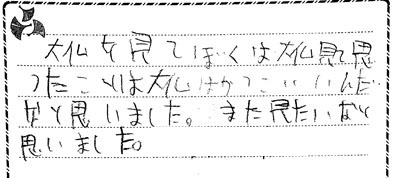 大仏を見てぼくは大仏見て思
ったことは大仏はかっこいいんだ
なと思いました。また見たいなと
思いました。